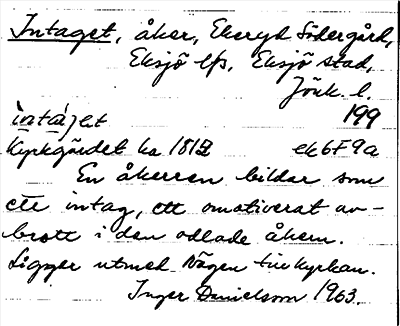 Intaget, åker, Ekeryd Södergård,
Eksjö lfs, Eksjö stad,
Jönk. l.
199
ìntàjet
Kyrkgärdet ha 1812 ek6F9a
En åkerren bildar som
ett intag, ett omotiverat av-
brott i den odlade åkern.
Ligger utmed vägen till kyrkan.
Inger Danielsson 1963.